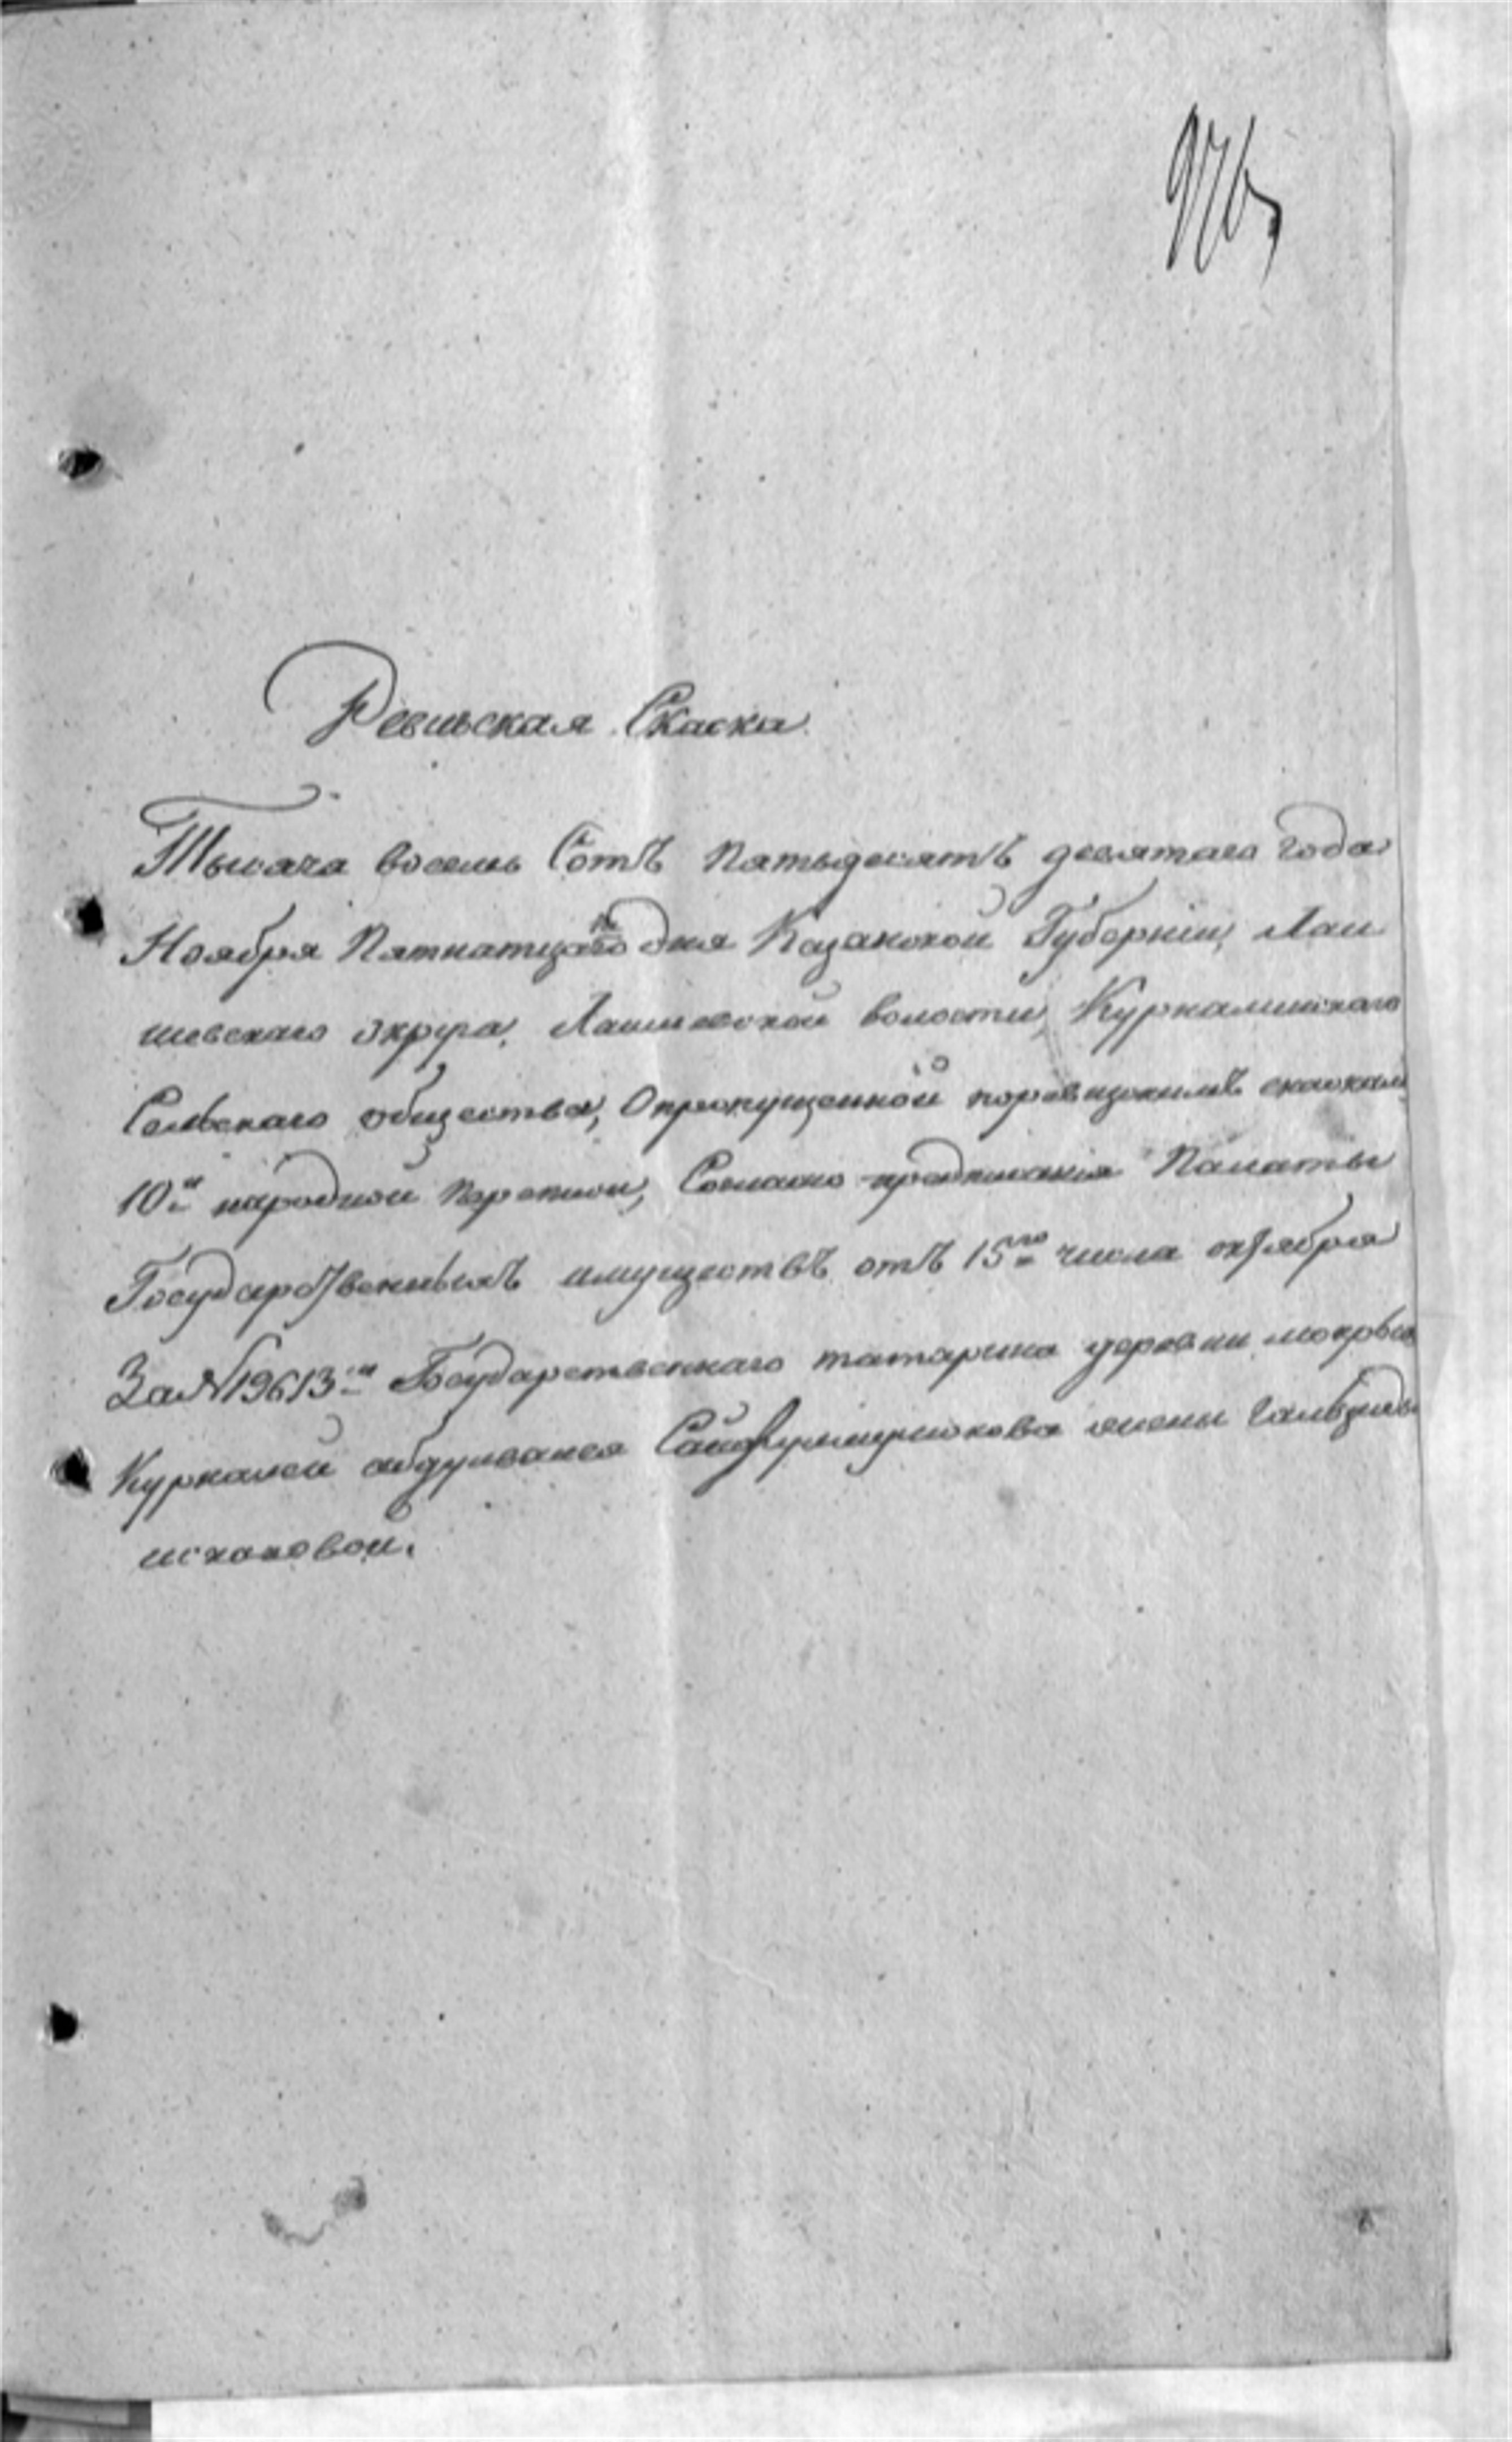 976
Ревизская Скаска
Тысяча восемь Сотъ Пятьдесятъ девятаго года
Ноября Пятнатцаго дня Казанской Губерніи, Лаи
шевскаго округа, Лаишевской волости, Куркалинскаго
Сельскаго общества, Опропущенной поревизскимъ скаскам
10й народной Переписи, Согласно предписанія Палаты
Государственныхъ имуществъ отъ 15го числа октября
За № 19613м Государственнаго татарина деревни мокрыхъ
Куркалей жены
исхаковой.